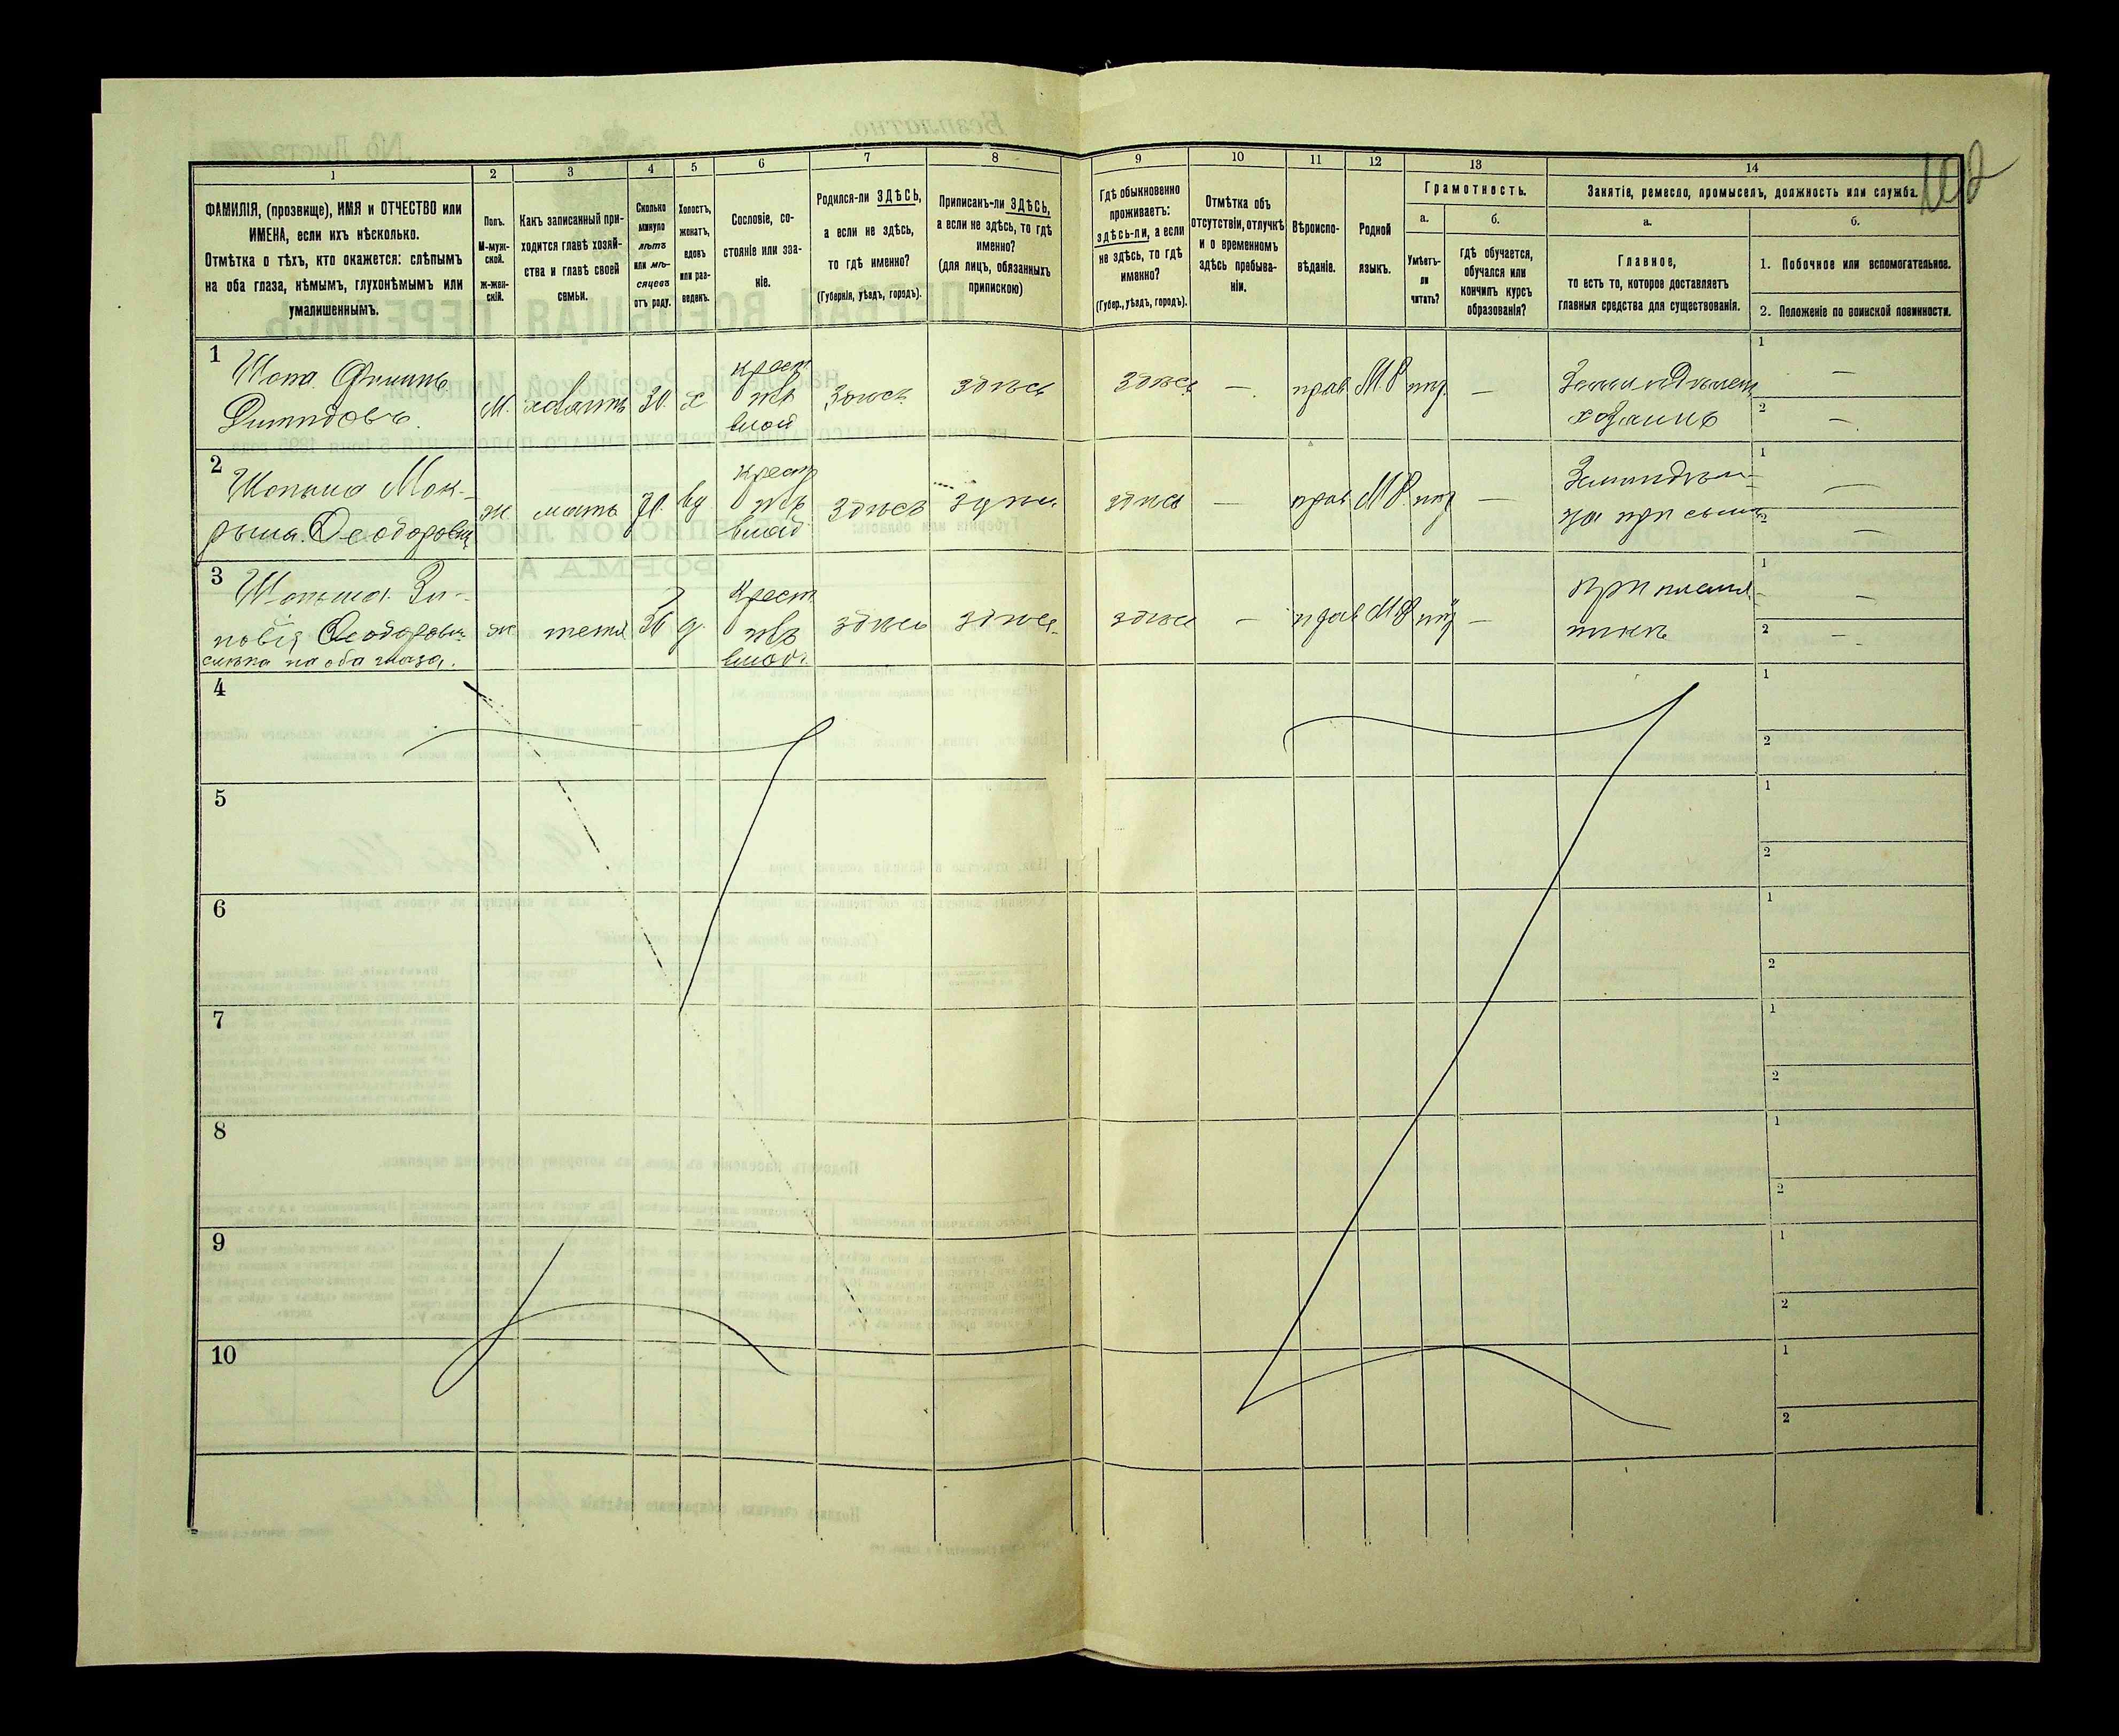 102
1
2
3
4
5
6
7
8
9
10
11
12
13
14
ФАМИЛІЯ, (прозвище), ИМЯ и ОТЧЕСТВО или
ИМЕНА, если ихъ нѣсколько.
Отмѣтка о тѣхъ, кто окажется: слѣпымъ
на оба глаза, нѣмымъ, глухонѣмымъ или
умалишеннымъ.
Полъ.
М-муж-
ской.
Ж-жен-
скій.
Какъ записанный при-
ходится главѣ хозяй-
ства и главѣ своей
семьи.
Сколько
минуло
лѣтъ
или мѣ-
сяцевъ
отъ роду.
Холостъ,
женатъ,
вдовъ
или раз-
веденъ.
Сословіе, со-
стояніе или зва-
ніе.
Родился-ли ЗДѢСЬ,
а если не здѣсь,
то гдѣ именно?
(Губернія, уѣздъ, городъ).
Приписанъ-ли ЗДѢСЬ,
а если не здѣсь, то гдѣ
именно?
(для лицъ, обязанныхъ
припискою)
Гдѣ обыкновенно
проживаетъ:
здѣсь-ли, а если
не здѣсь, то гдѣ
именно?
(Губер., уѣздъ, городъ).
Отмѣтка объ
отсутствіи, отлучкѣ
и о временномъ
здѣсь пребыва-
ніи.
Вѣроиспо-
вѣданіе.
Родной
языкъ.
Грамотность.
а.
Умѣетъ-
ли
читать?
б.
гдѣ обучается,
обучался или
кончилъ курсъ
образованія?
Занятіе, ремесло, промыселъ, должность или служба.
а.
Главное,
то есть то, которое доставляетъ
главныя средства для существованія.
б.
1. Побочное или вспомогательное.
2. Положеніе по воинской повинности.
1
Шопа Филипъ
Демидовъ.
М.
хозяинъ
30.
х
крест
влад
Здѣсь
здѣсь
здѣсь
—
прав
М.Р
—
Земледѣлец
хозяинъ
1 —
2 —
2
Шопына Мок-
рына Ѳеодоровна
ж.
мать
70.
вд.
Крест
влад.
Здѣсь
здѣсь
здѣсь
—
прав
М.Р
—
за при сынѣ
1 —
2 —
3
Шопына Зи-
новія Ѳеодоровна
слѣпа на оба глаза.
ж
тетя
д.
Крест.
влад.
здѣсь
здѣсь
здѣсь
—
прав
М.Р
—
При племян
никѣ
1 —
2 —
4
1
2
5
1
2
6
1
2
7
1
2
8
1
2
9
1
2
10
1
2